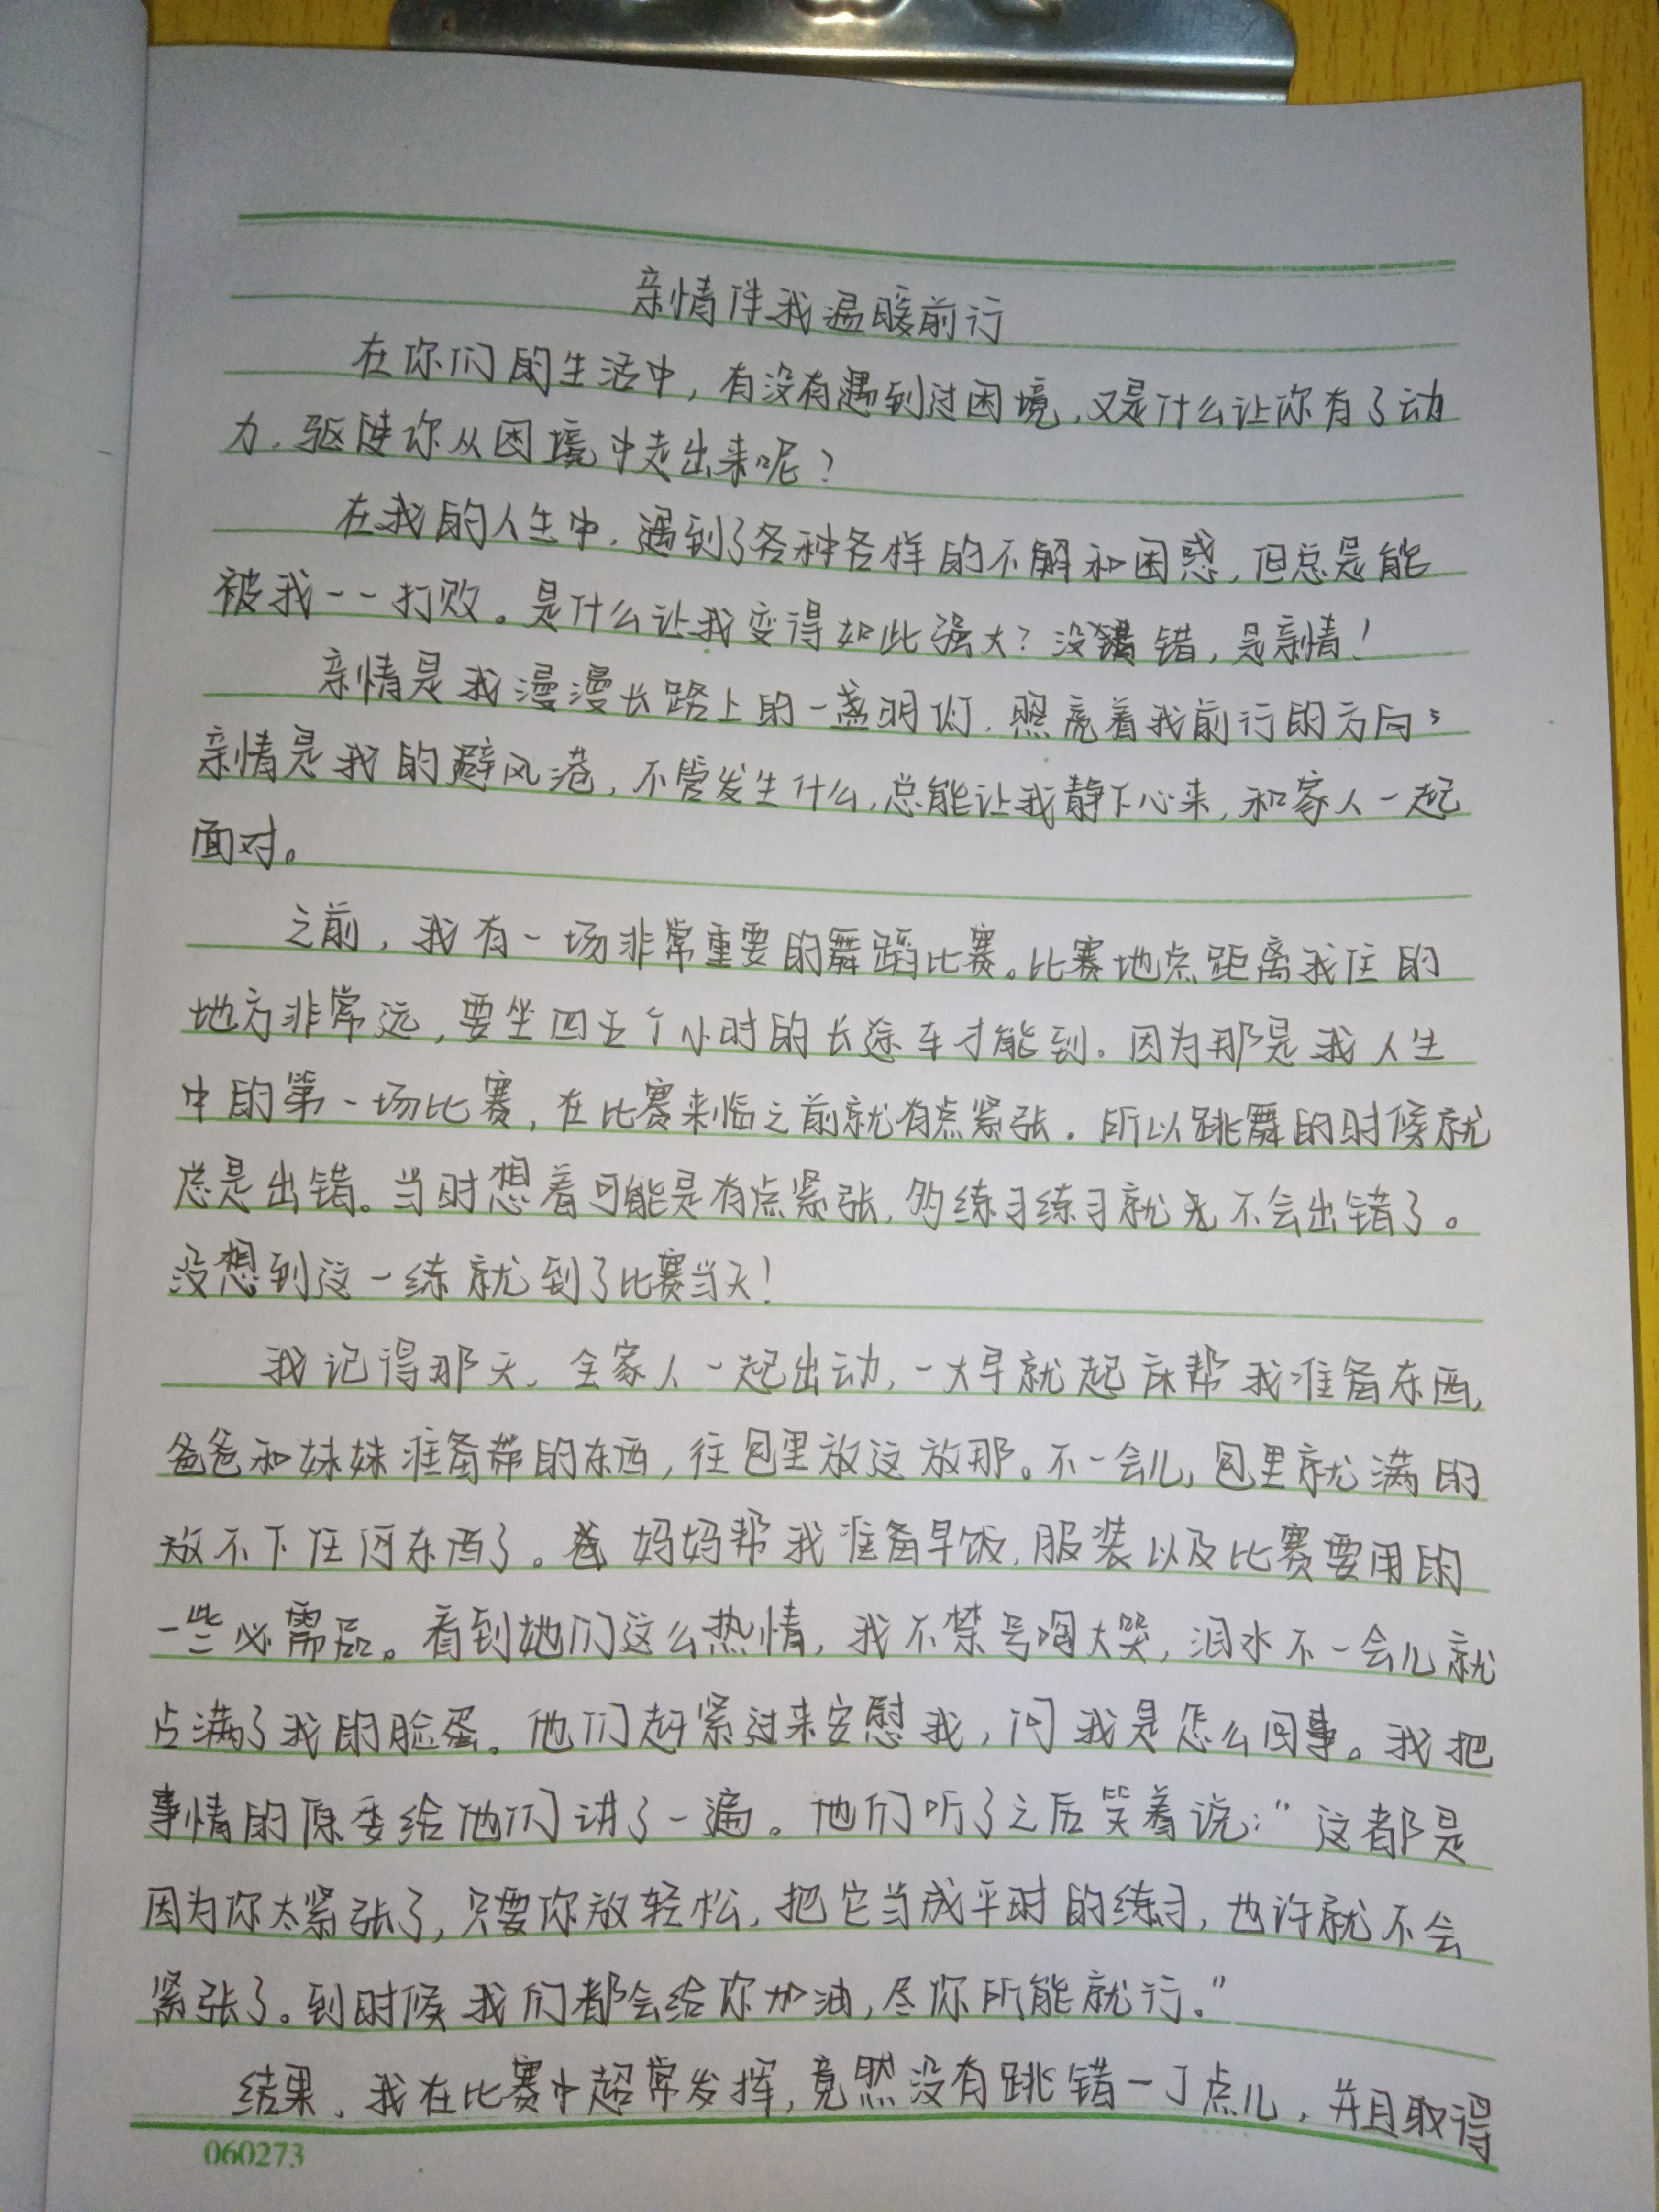 亲情伴我温暖前行
在你们的生活中，有没有遇到过困境，又是什么让你有了动
力，驱使你从困境中走出来呢？
在我的人生中，遇到了各种各样的不解和困惑，但总是能
被我一一打败。是什么让我变得如此强大？没错，是亲情！
亲情是我漫漫长路上的一盏明灯，照亮着我前行的方向；
亲情是我的避风港，不管发生什么，总能让我静下心来，和家人一起
面对。
之前，我有一场非常重要的舞蹈比赛。比赛地点距离我住的
地方非常远，要坐四五个小时的长途车才能到。因为那是我人生
中的第一场比赛，在比赛来临之前就有点紧张。所以跳舞的时候就
总是出错。当时想着可能是有点紧张，多练习练习就不会出错了。
没想到这一练就到了比赛当天！
我记得那天，全家人一起出动，一大早就起床帮我准备东西，
爸爸和妹妹准备带的东西，往包里放这放那。不一会儿，包里就满的
放不下任何东西了。妈妈帮我准备早饭，服装以及比赛要用的
一些必需品。看到她们这么热情，我不禁号啕大哭，泪水不一会儿就
占满了我的脸蛋。他们赶紧过来安慰我，问我是怎么回事。我把
事情的原委给他们讲了一遍。他们听了之后笑着说：“这都是
因为你太紧张了，只要你放轻松，把它当成平时的练习，也许就不会
紧张了。到时候我们都会给你加油，尽你所能就行。”
结果，我在比赛中超常发挥，竟然没有跳错一丁点儿，并且取得
060273